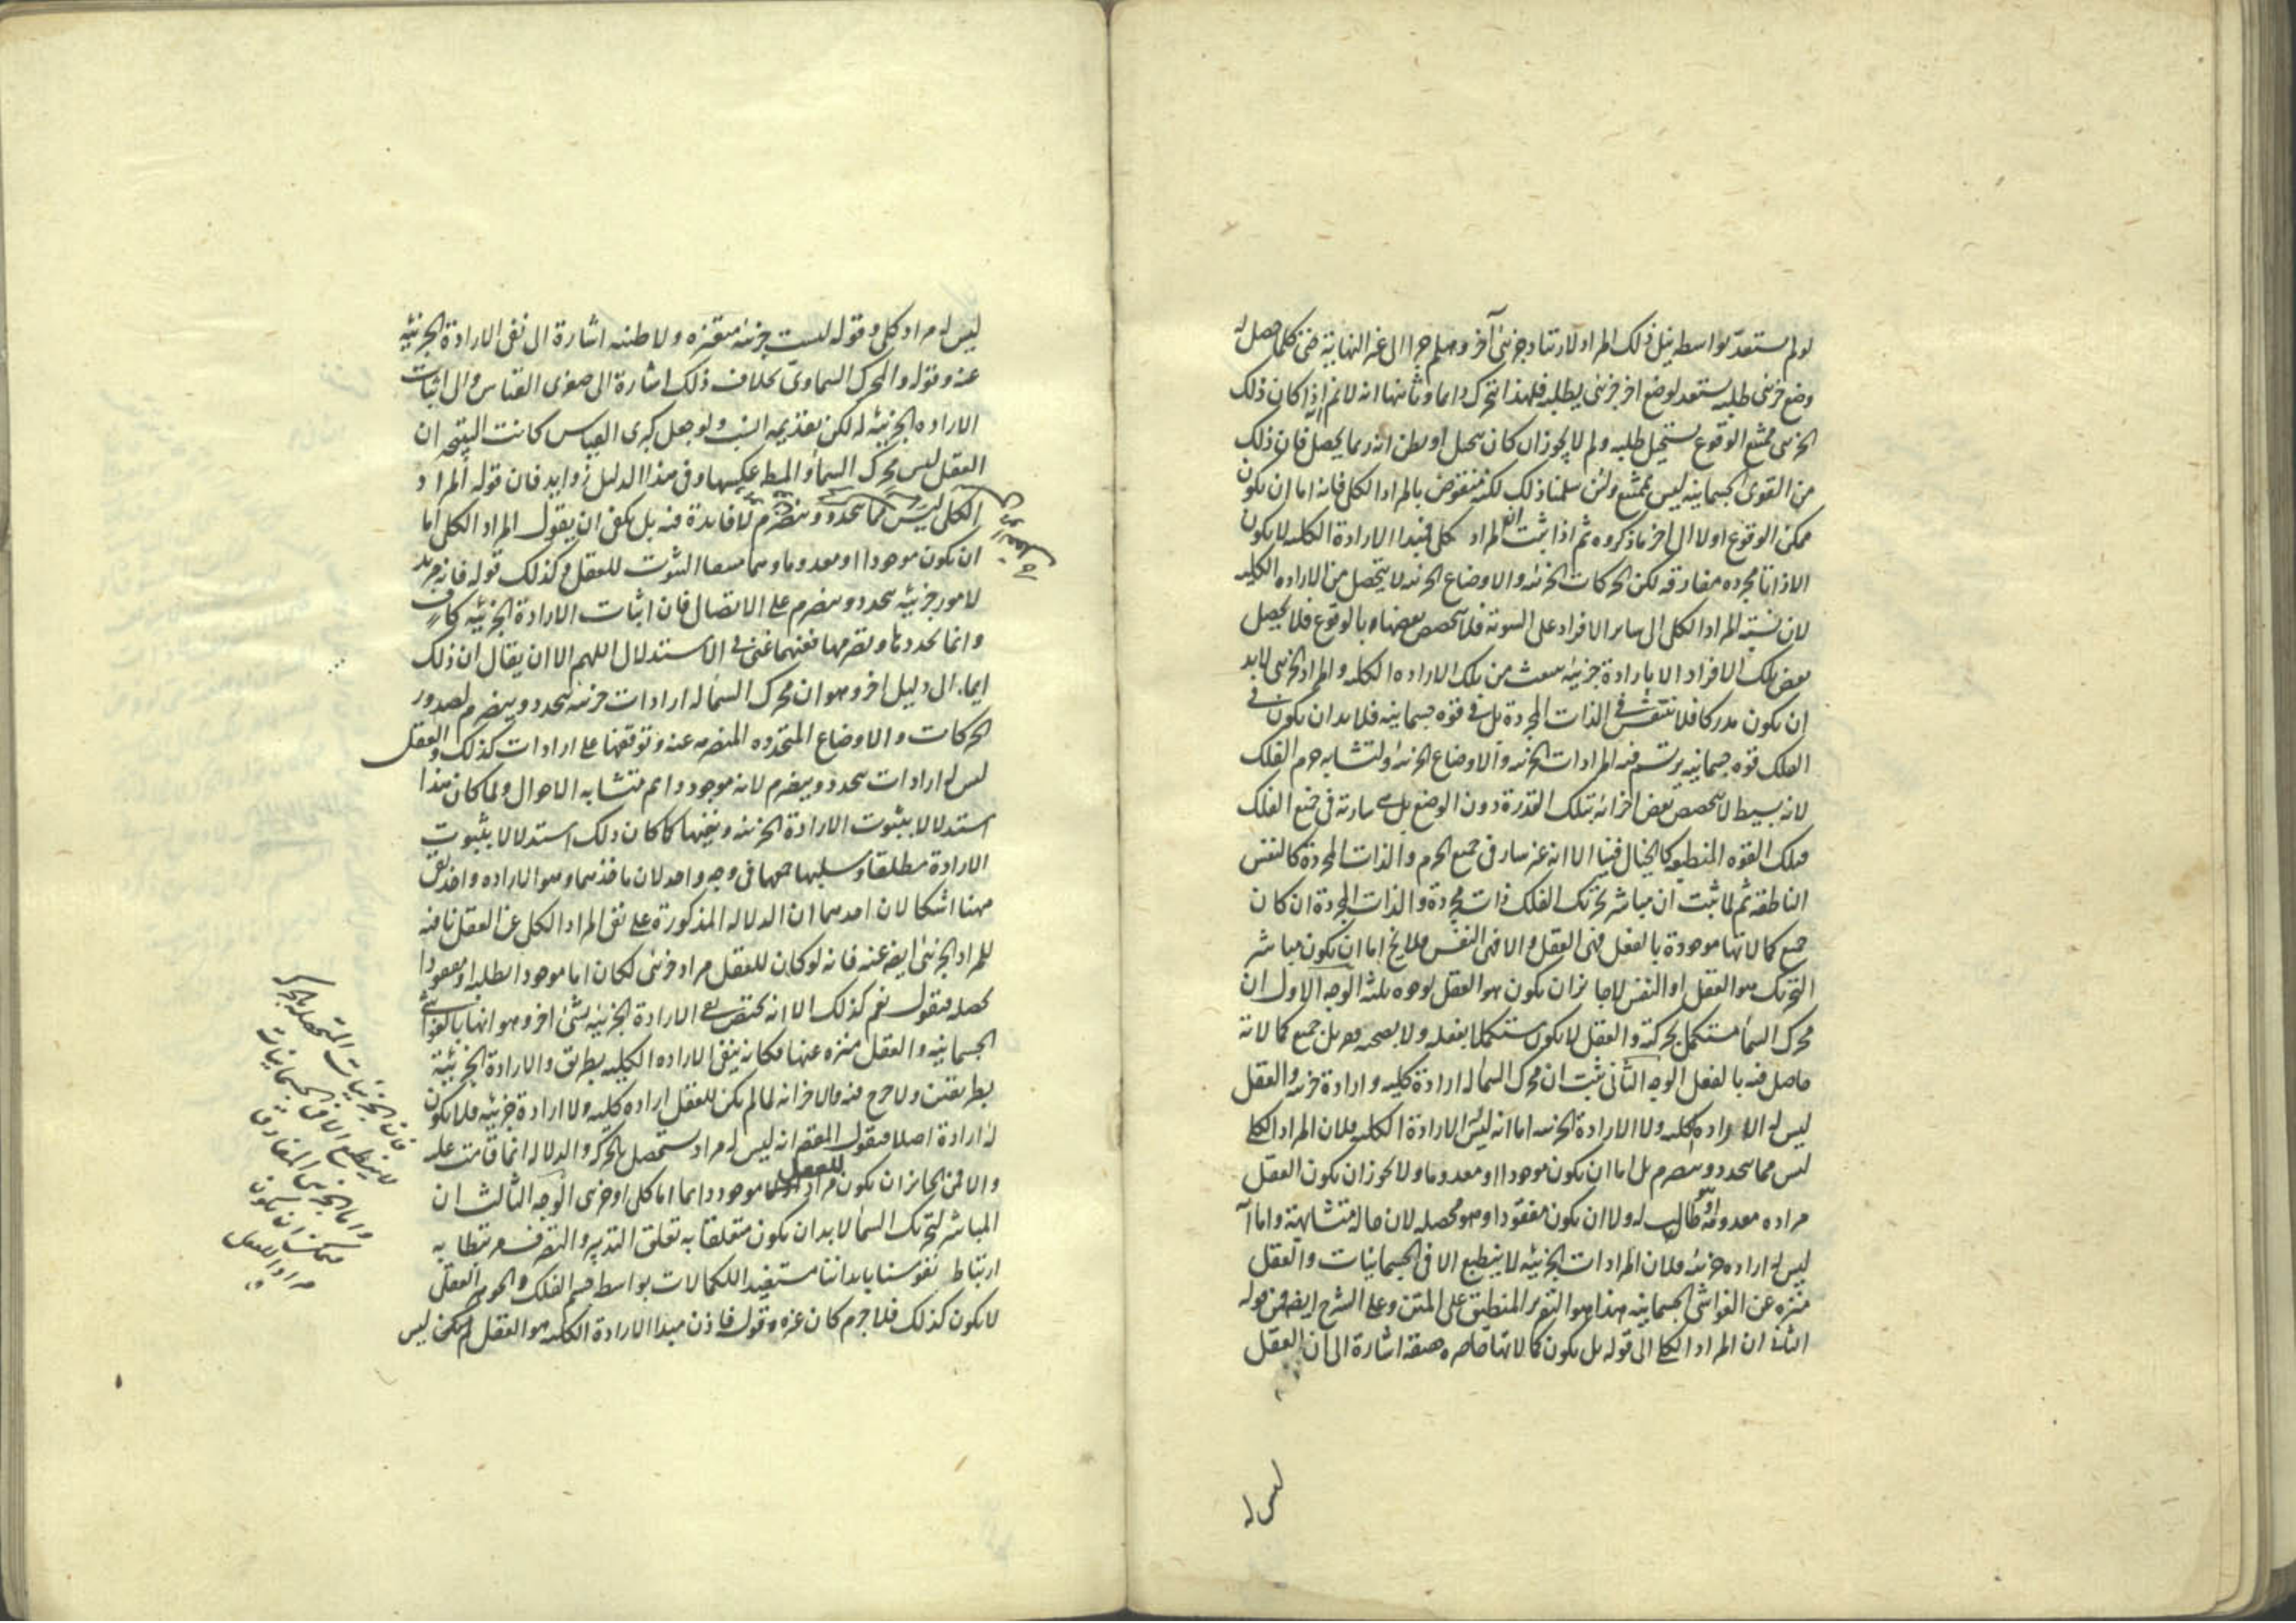 لو لم يستعد بواسطة نيل ذلك المراد لارتياد جزئى آخر وهلم جرا الى غير النهاية حتى كلما حصل له
وضع جزئى طلبه يستعد لوضع اخر جزئى يطلبه فلهذا تحرك دائما وثانيها انه لا نم انه اذا كان ذلك
الجزئى ممتنع الوقوع يستحيل طلبه ولم لا يجوز ان كان او يظن انه ربما يحصل فان ذلك
من القوى الجسمانية ليس بممتنع ولئن سلمنا ذلك لكنه منقوض بالمراد الكلى فانه اما ان يكون
ممكن الوقوع اولا الى اخر ما ذكروه ثم اذا ثبت ان المراد كلى فمبدا الارادة الكليه لا يكون
الا ذاتا مجرده مفارقه لكن الحركات الجزئيه والاوضاع الجزئيه لا يتحصل من الاراده الكليه
لان نسبة المراد الكلى الى ساير الافراد على السوية فلا يتخصص بعضها بالوقوع فلا يحصل
بعض تلك الافراد الا بارادة جزئية ينبعث من تلك الاراده الكليه والمراد الجزئى لا بد
ان يكون مدركا فلا ينتقش فى الذات المجردة بل فى قوه جسمانيه فلا بد ان يكون فى
الفلك قوه جسمانيه يرتسم فيه المرادات الجزئيه والاوضاع الجزئيه ولتشابه جرم الفلك
لانه بسيط لا يتخصص بعض اجزائه بتلك القدرة دون البعض بل هى سارية فى جميع الفلك
فتلك القوه المنطبعه كالخيال فينا الا انه غير سار فى جميع الجرم والذات المجردة كالنفس
الناطقه ثم لما ثبت ان مباشر تحريك الفلك ذات مجردة والذات المجردة ان كان
جميع كمالاتها موجودة بالفعل فهى العقل والا فهى النفس فلا يخ اما ان يكون مباشر
التحريك هو العقل او النفس لا جائز ان يكون هو العقل لوجوه ثلثة الوجه الاول ان
محرك السماء مستكمل بحركته والعقل لا يكون مستكملا بفعله بل جميع كمالاته
حاصل فيه بالفعل الوجه الثانى ثبت ان محرك السماء له ارادة كلية وارادة جزئيه والعقل
ليس له الاراده الكليه ولا الارادة الجزئيه اما انه ليس له الارادة الكليه فلان المراد الكلى
ليس مما يتجدد وينصرم بل اما ان يكون موجودا او معدوما ولا يجوز ان يكون العقل
مراده معدوما وهو طالب له ولا ان يكون مفقودا وهو محصله لان حاله متشابهة واما انه
ليس له اراده جزئيه فلان المرادات الجزئيه لا ينطبع الا فى الجسمانيات والعقل
منزه عن الغواشى الجسمانيه هذا هو التقرير المنطبق على المتن وعلى الشرح ايضا فمن قوله
ان المراد الكلى الى قوله بل يكون كمالاتها حاضره حقيقه اشارة الى ان العقل
ليس له
ليس له مراد كلى وقوله ليست جزئيه متغيره ولا ظنيه اشارة الى نفى الارادة الجزئيه
عنه وقوله والمحرك السماوى بخلاف ذلك اشارة الى صغرى القياس والى اثبات
الاراده الجزئيه له لكن بتقديمه ولو جعل كبرى القياس كانت النتيجه ان
العقل ليس محرك السماء والمط عكسها وفى هذا الدليل زوايد فان قوله المراد
الكلى ليس مما يتجدد وينصرم لا فايدة فيه بل يكفى ان يقول المراد الكلى اما
ان يكون موجودا او معدوما وهما للعقل وكذلك قوله فانه مريد
لامور جزئيه يتجدد وينصرم على الاتصال فان اثبات الارادة الجزئيه كاف
واما تجددها وتصرمها فعنهما غنى فى الاستدلال اللهم الا ان يقال ان ذلك
ايماء الى دليل اخر وهو ان محرك السماء له ارادات جزئيه يتجدد وينصرم لصدور
الحركات والاوضاع المتجدده المنصرمه عنه وتوقفها على ارادات كذلك والعقل
ليس له ارادات يتجدد وينصرم لانه موجود دايم متشابه الاحوال ولما كان هذا
استدلالا بثبوت الارادة الجزئيه ونفيها كما كان ذلك استدلالا بثبوت
الارادة مطلقا وسلبها جمعها فى وجه واحد لان ماخذهما وهو الاراده واحد بقى
ههنا اشكالان احدهما ان الدلاله المذكورة على نفى المراد الكلى عن العقل نافيه
للمراد الجزئى ايضا عنه فانه لو كان للعقل مراد جزئى لكان اما موجودا يطلبه او مفقودا
يحصله فنقول نعم كذلك الا انه يختص نفى الارادة الجزئيه بشئ اخر وهو انها بالغواشى
الجسمانيه والعقل منزه عنها فكانه ينفى الاراده الكليه بطريق والارادة الجزئيه
بطريقين ولا حرج فيه والاخر انه لما لم يكن للعقل ارادة كليه ولا ارادة جزئيه فلا يكون
له ارادة اصلا فنقول انه ليس له مراد مستحصل بالحركه والدلاله انما قامت عليه
والا فمن الجائز ان يكون للعقل مراد موجود دايما اما كلى او جزئى الوجه الثالث ان
المباشر لتحريك السماء لا بد ان يكون متعلقا به تعلق التدبير والتصرف مرتبطا به
ارتباط نفوسنا بابداننا مستفيد الكمالات بواسطه جسم الفلك والجوهر العقلى
لا يكون كذلك فلا جرم كان غيره وقوله فاذن مبدا الارادة الكليه هو العقل لم يكن ليس
فان الجزئيات المتحصله بالحركه
لا ينطبع الا فى الجسمانيات
واما الجزئى المفارق
فيمكن ان يكون
مراد العقل